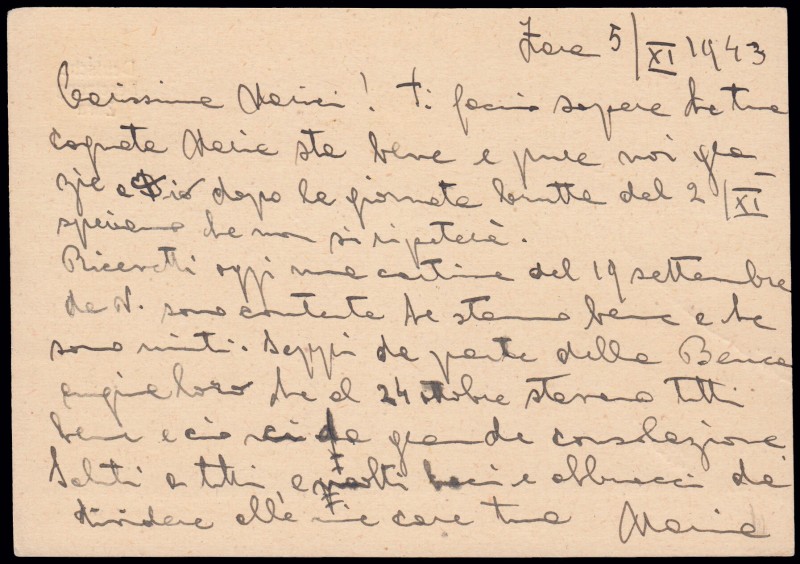 Zara 5/XI 1943
Carissima Marici! Ti facio sapere che tua
cognata Maria sta bene e pure noi gra
zie a Dio dopo la giornata brutta del 2/XI
speriamo che non si ripeterà.
Ricevetti oggi una cartina del 19 settembre
da N. sono contenta che stanno bene e che
sono uniti. Seppi da parte della Banca
che al 24 ottobre stavano tutti
bene e ciò ci da grande consolazione
Saluti a tutti e molti baci e abbracci da
dividere alle mie care tua Maria